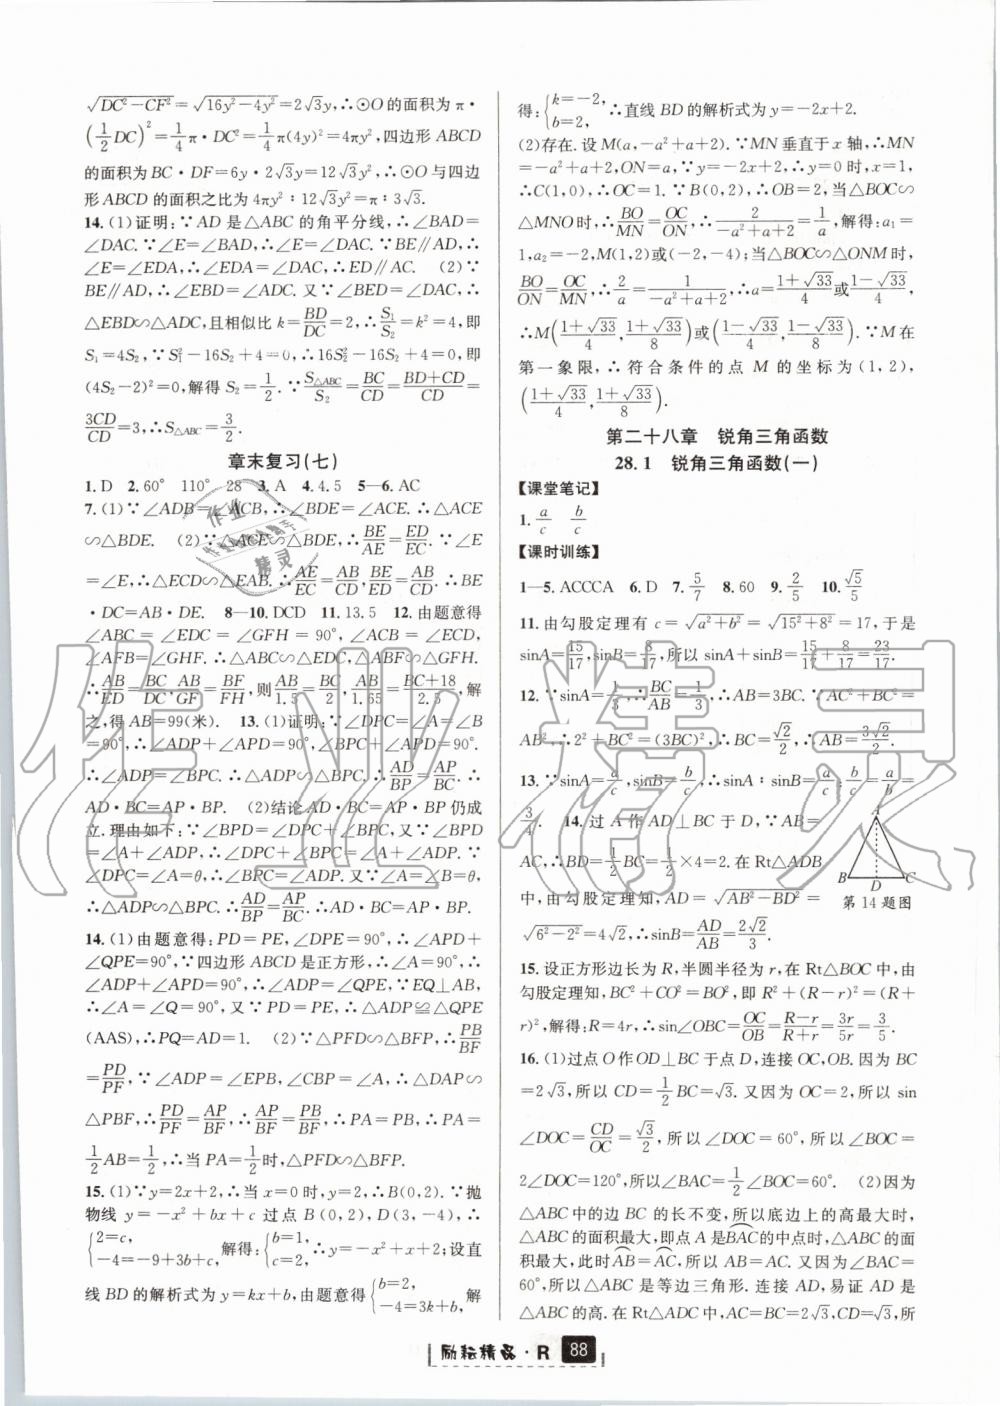 √(DC²−CF²)=√(16y²−4y²)=2√3y,∴⊙O的面积为π·
(1/2 DC)²=1/4π·DC²=1/4π(4y)²=4πy²,四边形ABCD
的面积为BC·DF=6y·2√3y=12√3y²,∴⊙O与四边
形ABCD的面积之比为4πy²∶12√3y²=π∶3√3.
14.(1)证明:∵AD是△ABC的角平分线,∴∠BAD=
∠DAC.∵∠E=∠BAD,∴∠E=∠DAC.∵BE∥AD,∴
∠E=∠EDA,∴∠EDA=∠DAC,∴ED∥AC. (2)∵
BE∥AD,∴∠EBD=∠ADC.又∵∠BED=∠DAC,∴
△EBD∽△ADC,且相似比k=BD/DC=2,∴S₁/S₂=k²=4,即
S₁=4S₂,∵S₁²−16S₂+4=0,∴16S₂²−16S₂+4=0,即
(4S₂−2)²=0,解得S₂=1/2.∵S△ABC/S₂=BC/CD=(BD+CD)/CD=
3CD/CD=3,∴S△ABC=3/2.
章末复习(七)
1.D 2.60° 110° 28 3.A 4.4.5 5—6.AC
7.(1)∵∠ADB=∠ACB,∴∠BDE=∠ACE.∴△ACE
∽△BDE. (2)∵△ACE∽△BDE,∴BE/AE=ED/EC.∵∠E
=∠E,∴△ECD∽△EAB.∴AE/EC=AB/CD,∴BE/ED=AB/CD,∴BE
·DC=AB·DE. 8—10.DCD 11.13.5 12.由题意得
∠ABC=∠EDC=∠GFH=90°,∠ACB=∠ECD,
∠AFB=∠GHF.∴△ABC∽△EDC,△ABF∽△GFH.
∴AB/ED=BC/DC,AB/GF=BF/FH,则AB/1.5=BC/2,AB/1.65=(BC+18)/2.5,解
之,得AB=99(米). 13.(1)证明:∵∠DPC=∠A=∠B
=90°,∴∠ADP+∠APD=90°,∠BPC+∠APD=90°.
∴∠ADP=∠BPC,∴△ADP∽△BPC.∴AD/BP=AP/BC.∴
AD·BC=AP·BP. (2)结论AD·BC=AP·BP仍成
立.理由如下:∵∠BPD=∠DPC+∠BPC,又∵∠BPD
=∠A+∠ADP,∴∠DPC+∠BPC=∠A+∠ADP.∵
∠DPC=∠A=θ,∴∠BPC=∠ADP.又∵∠A=∠B=
θ,∴△ADP∽△BPC,∴AD/BP=AP/BC.∴AD·BC=AP·BP.
14.(1)由题意得:PD=PE,∠DPE=90°,∴∠APD+
∠QPE=90°,∵四边形ABCD是正方形,∴∠A=90°,
∴∠ADP+∠APD=90°,∴∠ADP=∠QPE,∵EQ⊥AB,
∴∠A=∠Q=90°,又∵PD=PE,∴△ADP≌△QPE
(AAS),∴PQ=AD=1. (2)∵△PFD∽△BFP,∴PB/BF
=PD/PF,∵∠ADP=∠EPB,∠CBP=∠A,∴△DAP∽
△PBF,∴PD/PF=AP/BF,∴AP/BF=PB/BF,∴PA=PB,∴PA=
1/2AB=1/2,∴当PA=1/2时,△PFD∽△BFP.
15.(1)∵y=2x+2,∴当x=0时,y=2,∴B(0,2).∵抛
物线y=−x²+bx+c过点B(0,2),D(3,−4),∴
{2=c, −4=−9+3b+c, 解得:{b=1, c=2, ∴y=−x²+x+2;设直
线BD的解析式为y=kx+b,由题意得{b=2, −4=3k+b, 解
得:{k=−2, b=2, ∴直线BD的解析式为y=−2x+2.
(2)存在.设M(a,−a²+a+2).∵MN垂直于x轴,∴MN
=−a²+a+2,ON=a,∵y=−2x+2,∴y=0时,x=1,
∴C(1,0),∴OC=1.∵B(0,2),∴OB=2,当△BOC∽
△MNO时,∴BO/MN=OC/ON,∴2/(−a²+a+2)=1/a,解得:a₁=
1,a₂=−2,M(1,2)或(−2,−4);当△BOC∽△ONM时,
BO/ON=OC/MN,∴2/a=1/(−a²+a+2),∴a=(1+√33)/4或(1−√33)/4,
∴M((1+√33)/4,(1+√33)/8)或((1−√33)/4,(1−√33)/8).∵M在
第一象限,∴符合条件的点M的坐标为(1,2),
((1+√33)/4,(1+√33)/8).
第二十八章 锐角三角函数
28.1 锐角三角函数(一)
【课堂笔记】
1.a/c b/c
【课时训练】
1—5.ACCCA 6.D 7.5/7 8.60 9.2/5 10.√5/5
11.由勾股定理有c=√(a²+b²)=√(15²+8²)=17,于是
sinA=15/17,sinB=8/17,所以sinA+sinB=15/17+8/17=23/17.
12.∵sinA=1/3,∴BC/AB=1/3,∴AB=3BC.∵AC²+BC²=
AB²,∴2²+BC²=(3BC)²,∴BC=√2/2,∴AB=3√2/2.
13.∵sinA=a/c,sinB=b/c,∴sinA∶sinB=a/c∶b/c=a/b=
3/4. 14.过A作AD⊥BC于D,∵AB=
AC,∴BD=1/2BC=1/2×4=2.在Rt△ADB
中,由勾股定理知,AD=√(AB²−BD²)=
√(6²−2²)=4√2,∴sinB=AD/AB=2√2/3.
A
B D C
第14题图
15.设正方形边长为R,半圆半径为r,在Rt△BOC中,由
勾股定理知,BC²+CO²=BO²,即R²+(R−r)²=(R+
r)²,解得:R=4r,∴sin∠OBC=OC/OB=(R−r)/(R+r)=3r/5r=3/5.
16.(1)过点O作OD⊥BC于点D,连接OC,OB.因为BC
=2√3,所以CD=1/2BC=√3.又因为OC=2,所以sin
∠DOC=CD/OC=√3/2,所以∠DOC=60°,所以∠BOC=
2∠DOC=120°,所以∠BAC=1/2∠BOC=60°. (2)因为
△ABC中的边BC的长不变,所以底边上的高最大时,
△ABC的面积最大,即点A是BAC的中点时,△ABC的面
积最大,此时AB=AC,所以AB=AC.又因为∠BAC=
60°,所以△ABC是等边三角形.连接AD,易证AD是
△ABC的高.在Rt△ADC中,AC=BC=2√3,CD=√3,所
励耘精品·R 88
作业精灵